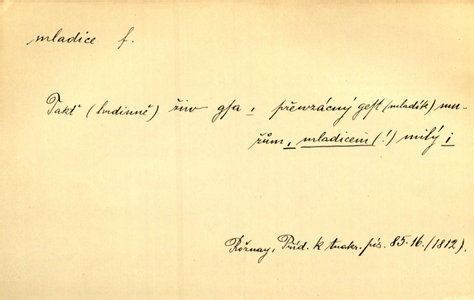 mladice f.
Takť (hrdinně) žiw gsa, přewzácný gest (mladík) mu-
žům, mladicem (!) milý i
Rožnay, Přid. k tuakr. pís. 85. 16. (1812).